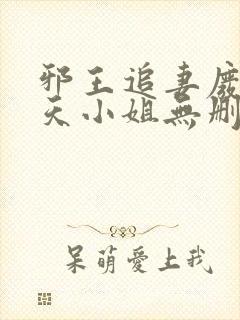 邪王追妻廢
天小姐無刪
呆萌愛上我